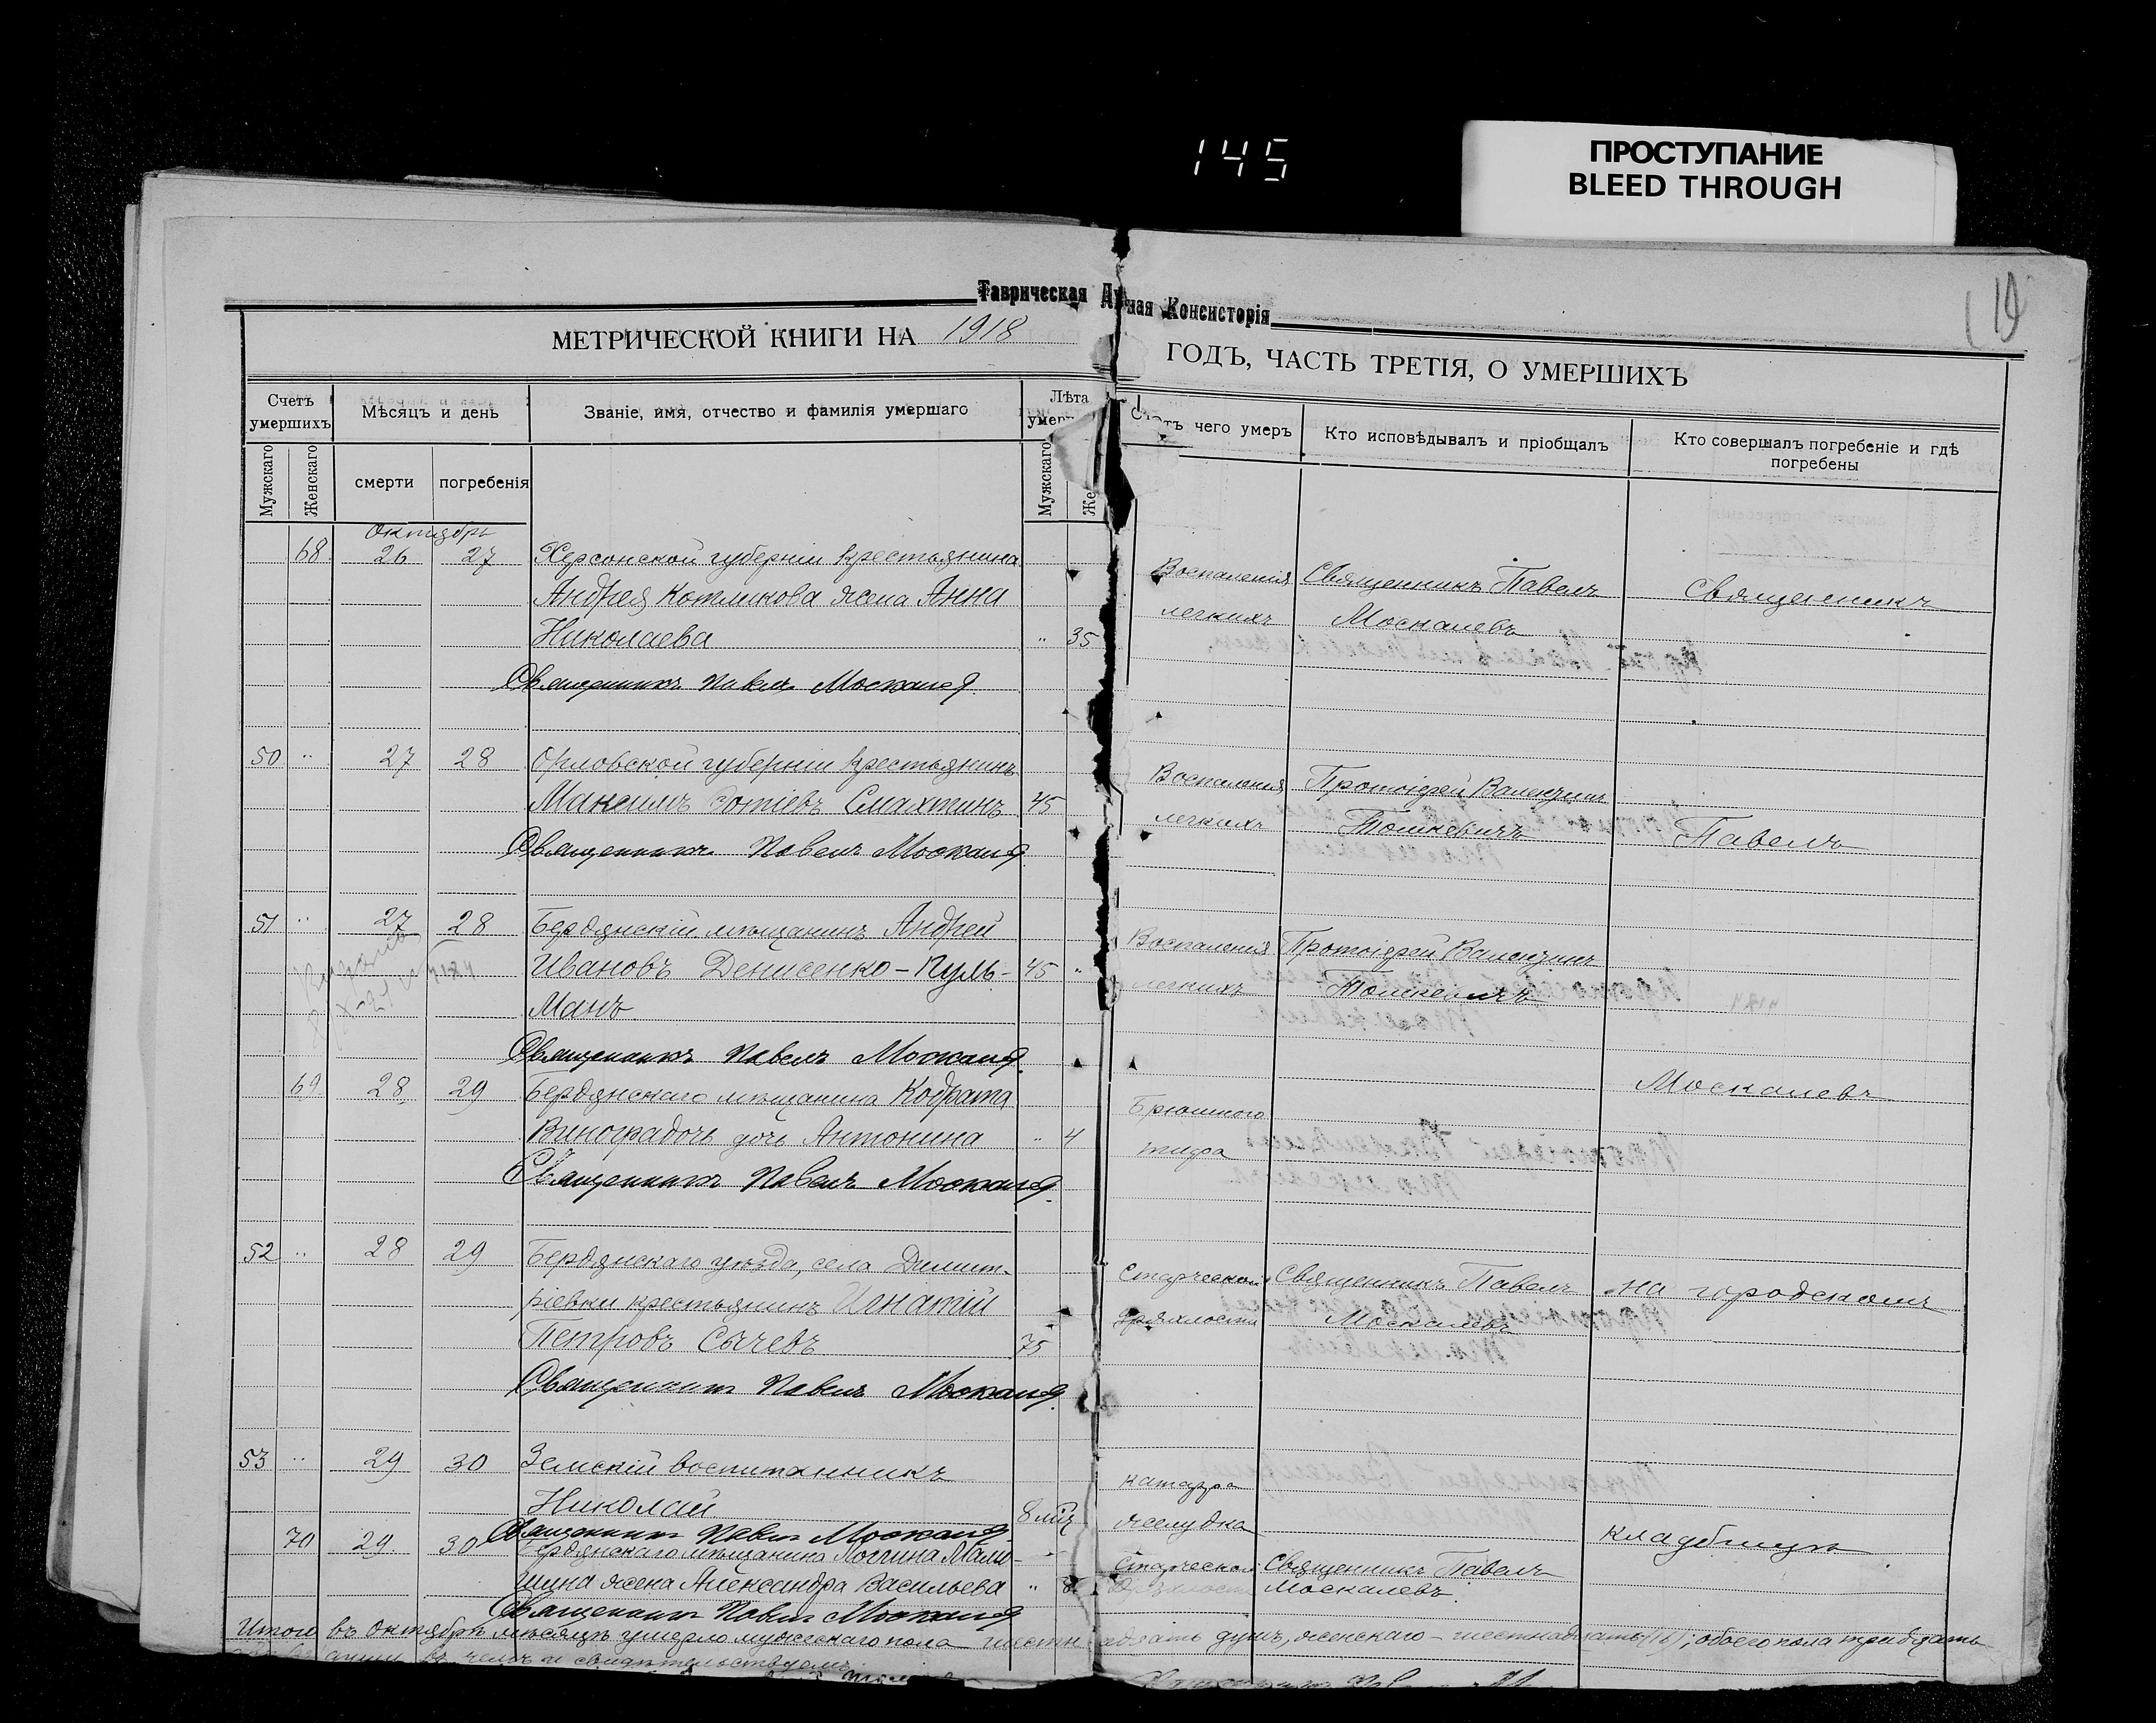 145
ПРОСТУПАНИЕ
BLEED THROUGH
Таврическая Ду ная Консисторія
МЕТРИЧЕСКОЙ КНИГИ НА 1918
ГОДЪ, ЧАСТЬ ТРЕТІЯ, О УМЕРШИХЪ
Счетъ умершихъ
Мѣсяцъ и день
Званіе, имя, отчество и фамилія умершаго
Лѣта
Отъ чего умеръ
Кто исповѣдывалъ и пріобщалъ
Кто совершалъ погребеніе и гдѣ погребены
Мужскаго
Женскаго
смерти
погребенія
Мужскаго
Же
Октябрь
68 26 27 Херсонской губерніи крестьянина
Андрея Котликова жена Анна
Николаева " 35
Воспаленія Священникъ Павелъ Священникъ
легкихъ Москалевъ
Священникъ Павелъ Москалев
50 " 27 28 Орловской губерніи крестьянинъ
Максимъ Фотіевъ Смахтинъ 45
Воспаленія Протоіерей Валентинъ
легкихъ Тошкевичъ Павелъ
Священникъ Павелъ Москалев
51 " 27 28 Бердянскій мѣщанинъ Андрей
Ивановъ Денисенко-Куль- 45 "
манъ
Воспаленія Протоіерей Валентинъ
легкихъ Тошкевичъ
Священникъ Павелъ Москалев
69 28 29 Бердянскаго мѣщанина Кодрата
Виноградочь дочь Антонина " 4
Москалевъ
Брюшного
тифа
Священникъ Павелъ Москалев
52 " 28 29 Бердянскаго уѣзда, села Димит-
ріевки крестьянинъ Игнатій
Петровъ Сычевъ 75
Старческой Священникъ Павелъ на городскомъ
дряхлости Москалевъ
Священникъ Павелъ Москалев
53 " 29 30 Земскій воспитанникъ
Николай 8 мѣц
катарра
желудка
кладбищѣ
Священникъ Павелъ Москалев
70 29 30 Бердянскаго мѣщанина Логгина Мами-
шина жена Александра Васильева "
Старческой Священникъ Павелъ
дряхлости Москалевъ
Священникъ Павелъ Москалев
Итого въ октябрѣ мѣсяцѣ умерло мужескаго пола шестнадцать душъ, женскаго - шестнадцать (16); обоего пола тридцать
въ чемъ и свидѣтельствуемъ: